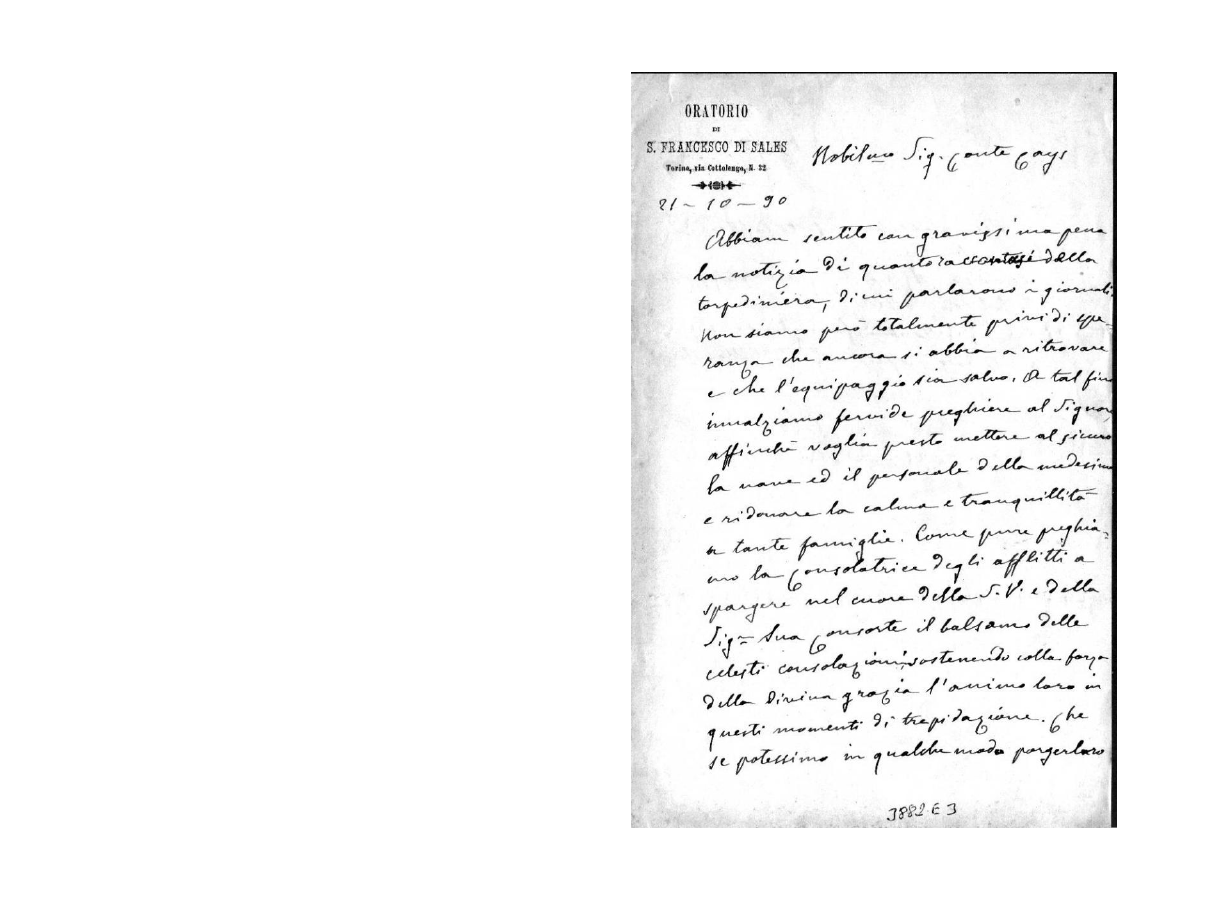 ORATORIO
DI
S. FRANCESCO DI SALES
Torino, via Cottolengo, N. 32
Nobilmo Sig. Conte Cays
21 - 10 - 90
Abbiam sentito con gravissima pena
la notizia di quanto raccontasi della
torpediniera, di cui parlarono i giornali.
Non siamo però totalmente privi di spe-
ranza che ancora si abbia a ritrovare
e che l'equipaggio sia salvo. A tal fine
innalziamo fervide preghiere al Signore,
affinchè voglia presto mettere al sicuro
la nave ed il personale della medesima
e ridonare la calma e tranquillità
a tante famiglie. Come pure preghia-
mo la Consolatrice degli afflitti a
spargere nel cuore della S. V. e della
Sigra Sua Consorte il balsamo delle
celesti consolazioni, sostenendo colla forza
della Divina grazia l'animo loro in
questi momenti di trepidazione. Che
se potessimo in qualche modo porger loro
3882 E 3